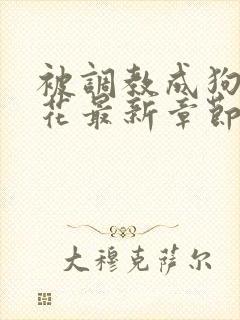 被調教成狗
花最新章節
大穆克萨尔